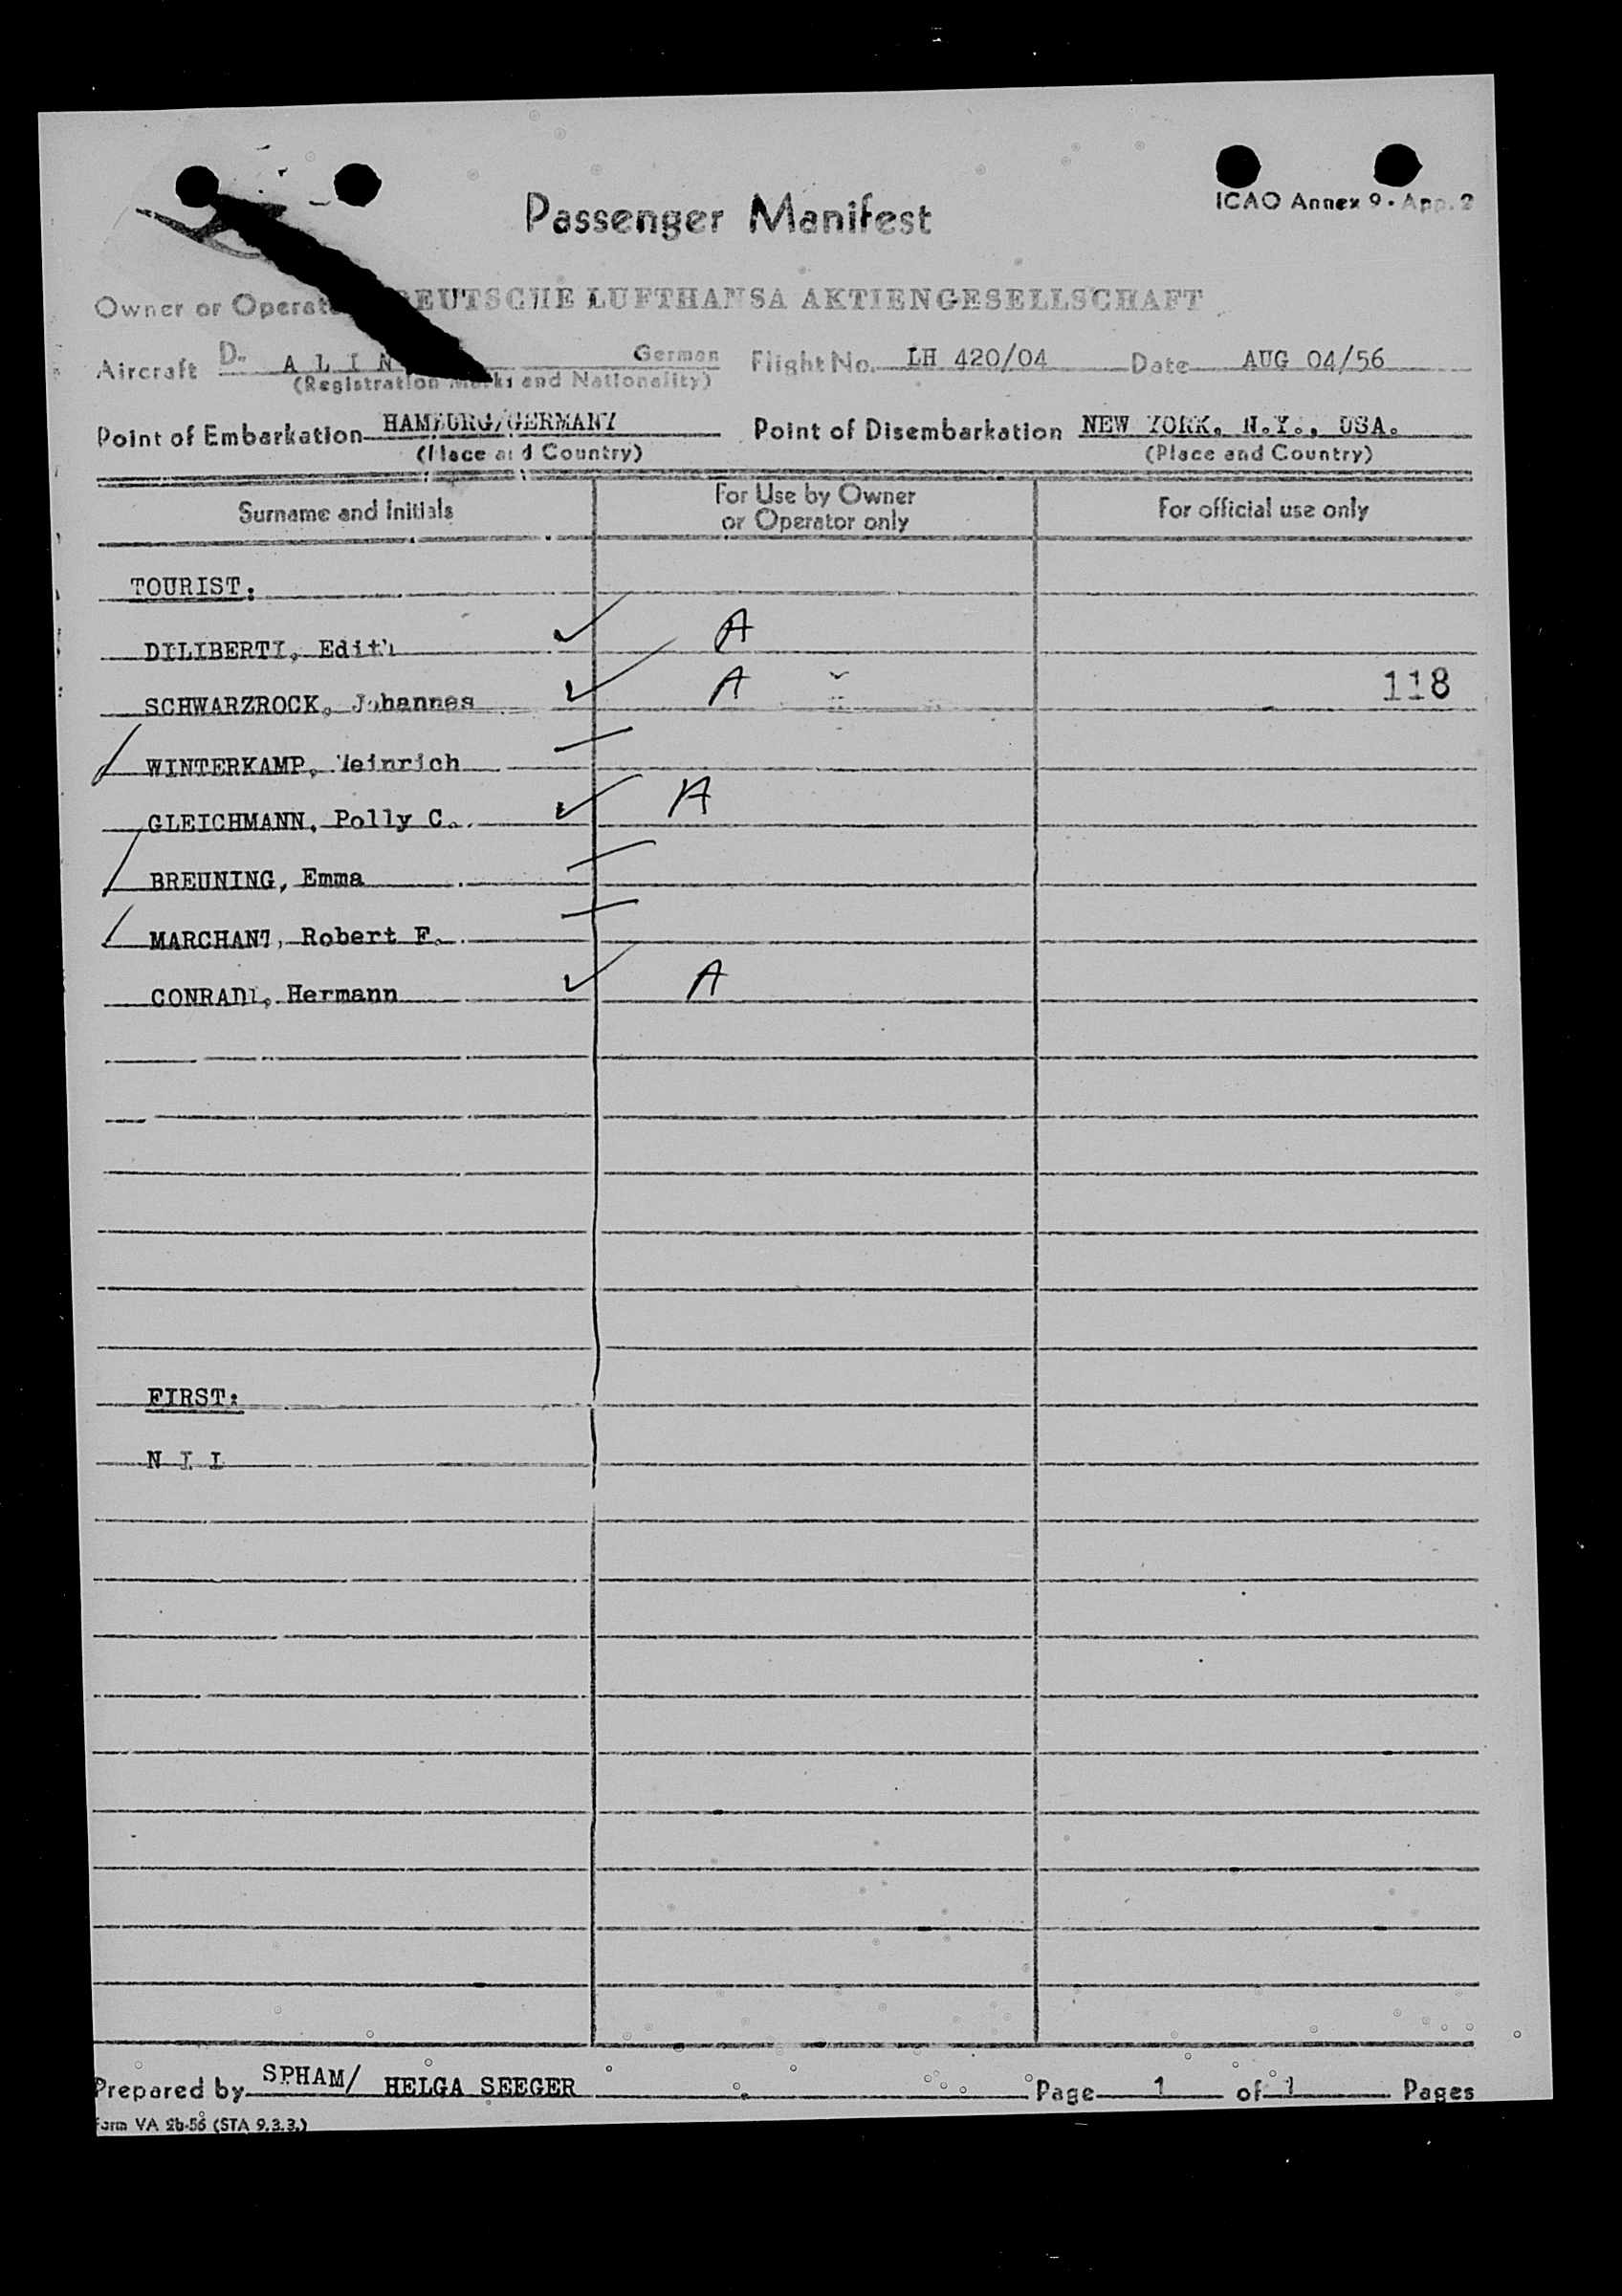 ICAO Annex 9 - App. 2
Passenger Manifest
Owner or Operator DEUTSCHE LUFTHANSA AKTIENGESELLSCHAFT
Aircraft D- A L I N German Flight No. LH 420/04 Date AUG 04/56
(Registration Marks and Nationality)
Point of Embarkation HAMBURG/GERMANY Point of Disembarkation NEW YORK, N.Y., USA.
(Place and Country) (Place and Country)
Surname and Initials For Use by Owner or Operator only For official use only
TOURIST:
DILIBERTI, Edith ✓ A
SCHWARZROCK, Johannes ✓ A 118
WINTERKAMP, Heinrich
GLEICHMANN, Polly C. ✓ A
BREUNING, Emma
MARCHANT, Robert F.
CONRADI, Hermann ✓ A
FIRST:
N I L
Prepared by SPHAM/ HELGA SEEGER Page 1 of 1 Pages
Form VA 2b-56 (STA 9.3.3.)